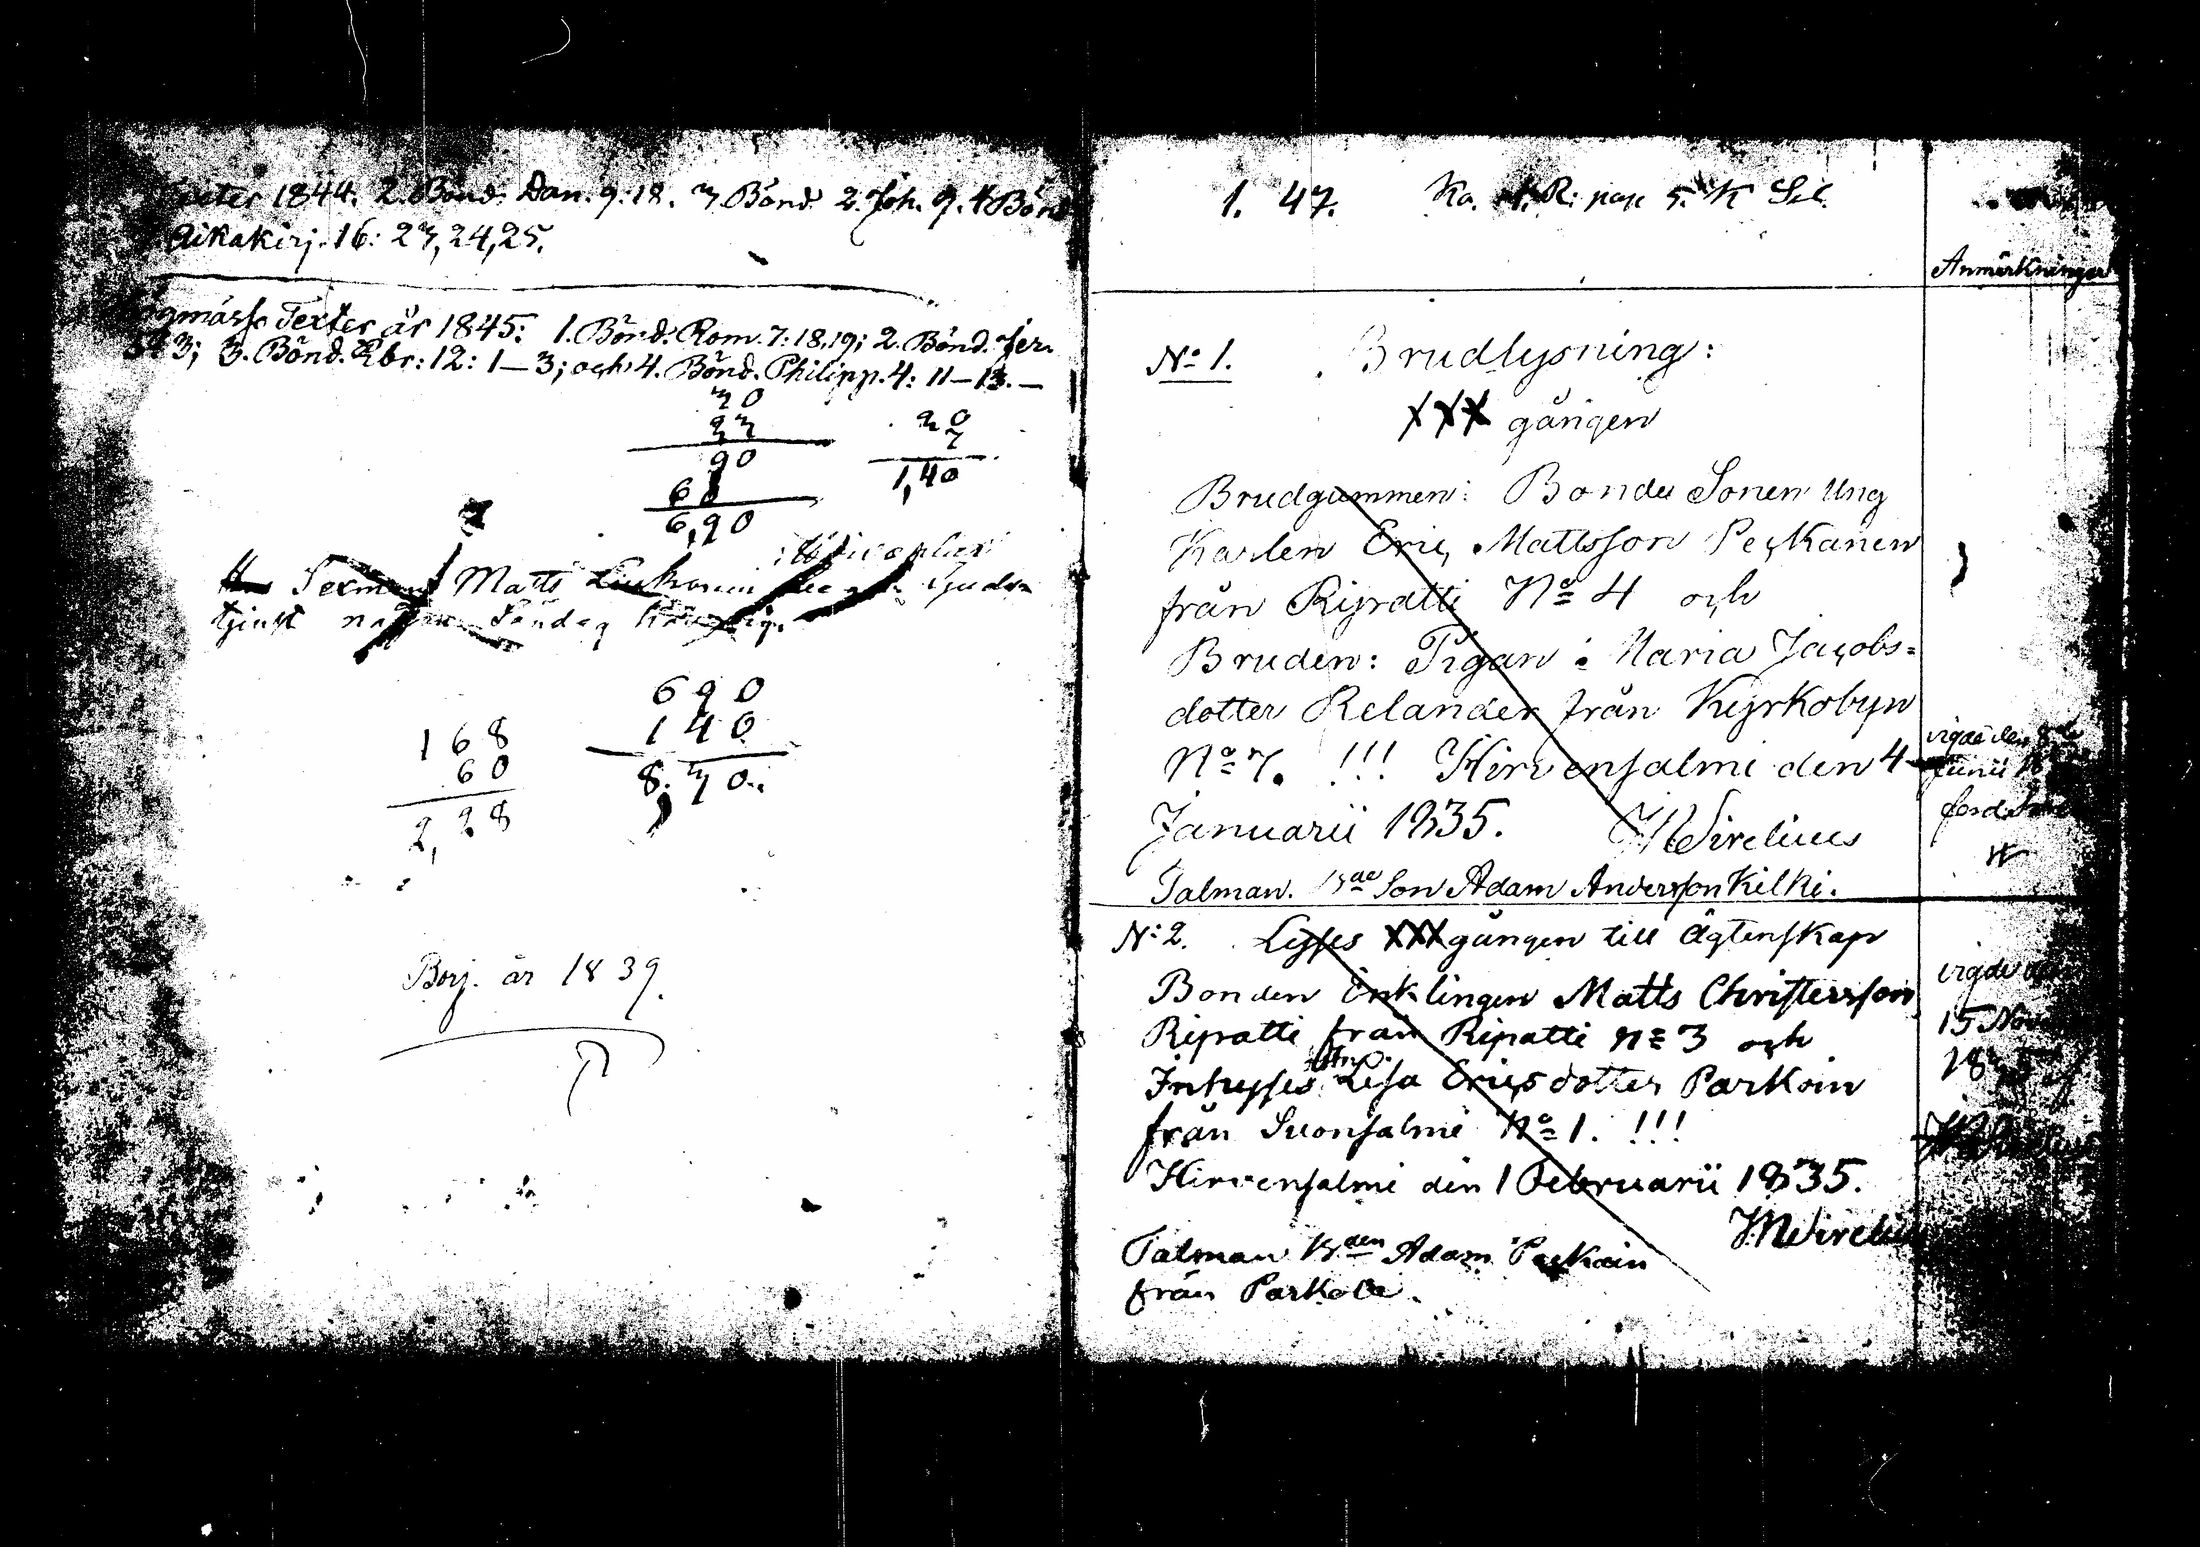 Texter 1844. 2. Bönd. Dan. 9:18. 3. Bönd. 2. Joh. 9. 4 Bönd
Aikakirj. 16: 23, 24, 25.
Texter år 1845: 1. Bönd. Rom. 7: 18, 19; 2. Bönd. Jer.
3; 3. Bönd. Ebr: 12: 1–3; och 4. Bönd. Philipp. 4: 11–13. –
30
23
90
6 0
6,90
20
7
1,40
Matts
tjenst Söndag
690
140
8,30.
168
60
2,28
Borj. år 1839.
1. 47.
Anmärkningar
No 1. Brudlysning:
XXX gången
Brudgummen: Bonde Sonen Ung
Karlen Eric Mattsson Peckanen
från Ripatti No 4 och
Bruden: Pigan: Maria Jacobs=
dotter Relander från Kyrkobyn
No 7. !!! Hirvensalmi den 4
Januarii 1835. JM Sirelius
Talman. Bde Son Adam Andersson Kilki.
vigde den 8
Junii
No 2. Lyses XXX gången till Ägtenskap
Bonden Enklingen Matts Christersson
Ripatti från Ripatti No 3 och
Inhyses Enk. Lisa Ericsdotter Parkoin
från Suonsalmi No 1. !!!
Hirvensalmi den 1 Februarii 1835.
JM Sirelius
Talman Bden Adam
från Parkola.
vigde den
15 Nov
1835 af